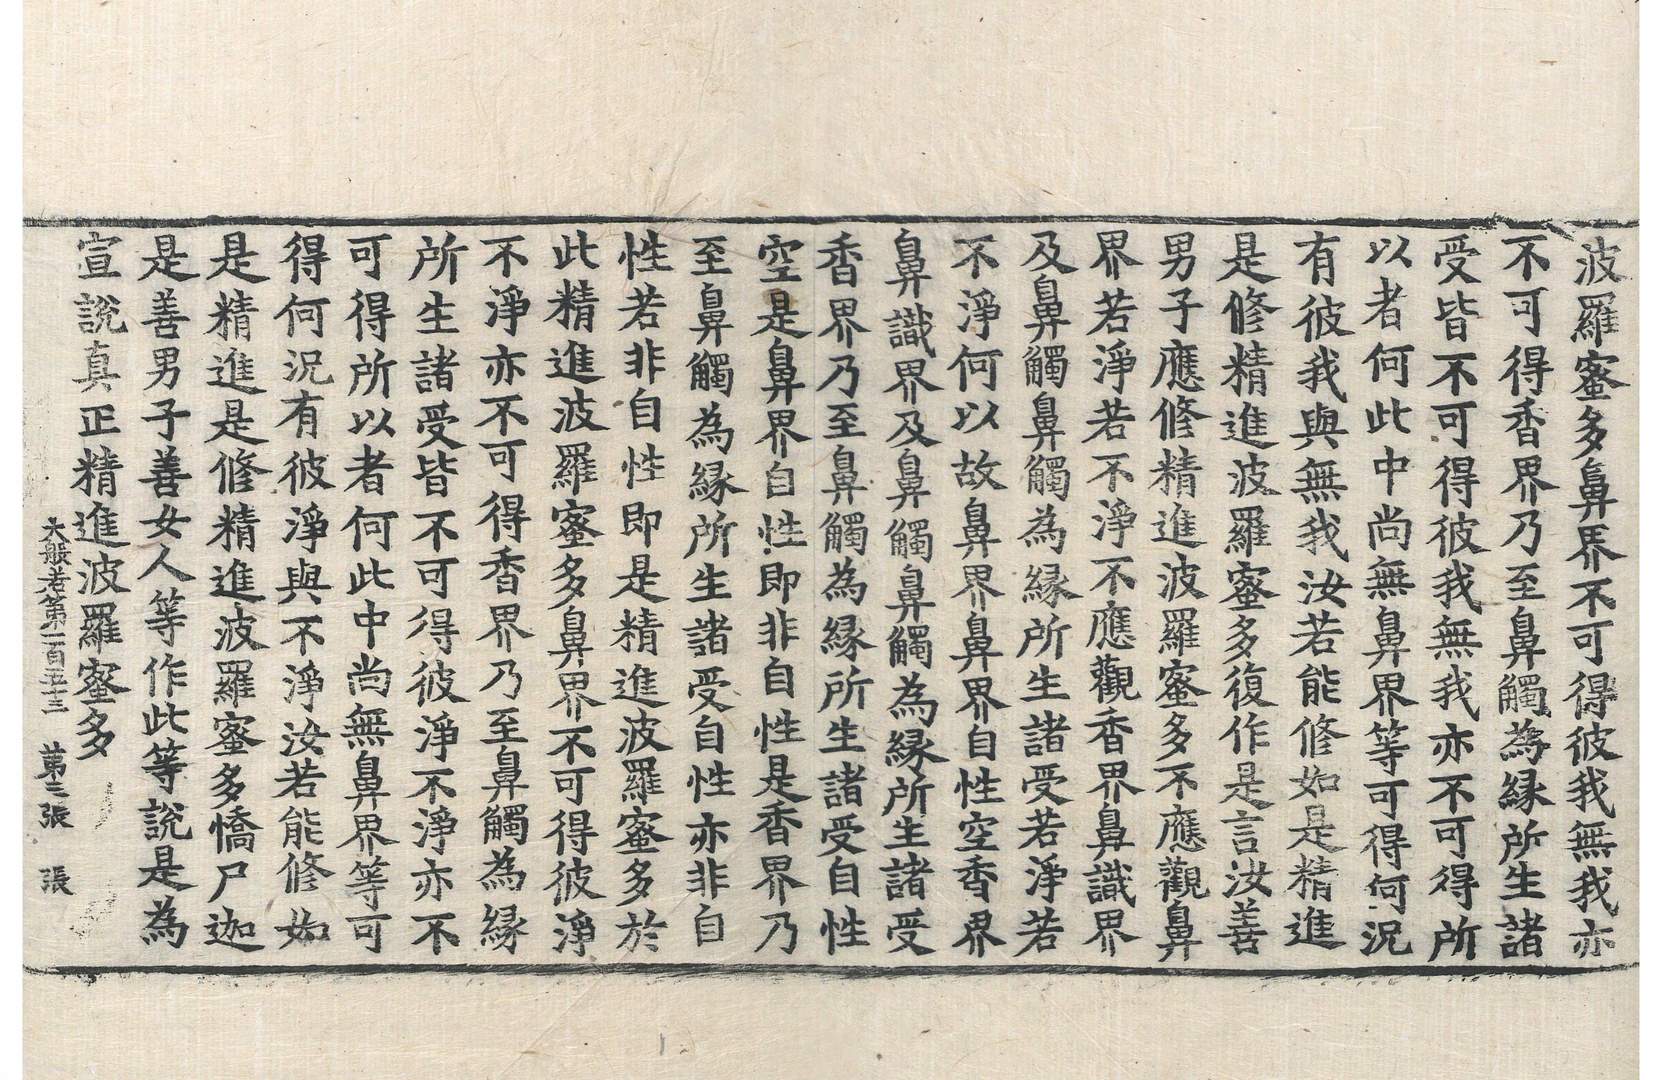 波羅蜜多鼻界不可得彼我無我亦
不可得香界乃至鼻觸為緣所生諸
受皆不可得彼我無我亦不可得所
以者何此中尚無鼻界等可得何況
有彼我與無我汝若能修如是精進
是修精進波羅蜜多復作是言汝善
男子應修精進波羅蜜多不應觀鼻
界若淨若不淨不應觀香界鼻識界
及鼻觸鼻觸為緣所生諸受若淨若
不淨何以故鼻界鼻界自性空香界
鼻識界及鼻觸鼻觸為緣所生諸受
香界乃至鼻觸為緣所生諸受自性
空是鼻界自性即非自性是香界乃
至鼻觸為緣所生諸受自性亦非自
性若非自性即是精進波羅蜜多於
此精進波羅蜜多鼻界不可得彼淨
不淨亦不可得香界乃至鼻觸為緣
所生諸受皆不可得彼淨不淨亦不
可得所以者何此中尚無鼻界等可
得何況有彼淨與不淨汝若能修如
是精進是修精進波羅蜜多憍尸迦
是善男子善女人等作此等說是為
宣說真正精進波羅蜜多
大般若第一百五十三 第三張 張